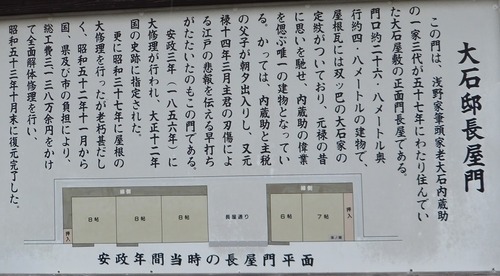 大石邸長屋門
この門は、浅野家筆頭家老大石内蔵助
の一家三代が五十七年にわたり住んでい
た大石屋敷の正面門長屋である。
門口約二十六・八メートル奥
行約四・八メートルの建物で、
屋根瓦には双ッ巴の大石家の
定紋がついており、元禄の昔
に思いを馳せ、内蔵助の偉業
を偲ぶ唯一の建物となってい
る。かっては、内蔵助と主税
の父子が朝夕出入りし、又元
禄十四年三月主君の刃傷によ
る江戸の悲報を伝える早打ち
がたたいたのもこの門である。
安政三年(一八五六年)に
大修理が行われ、大正十二年
国の史跡に指定された。
更に昭和三十七年に屋根の
大修理を行ったが老朽甚だし
く、昭和五十二年十一月から
国、県及び市の負担により、
総工費三一三八万余円をかけ
て全面解体修理を行い、
昭和五十三年十月末に復元完了した。
押入
8帖
8帖
8帖
長屋通り
6帖
7帖
押入
安政年間当時の長屋門平面